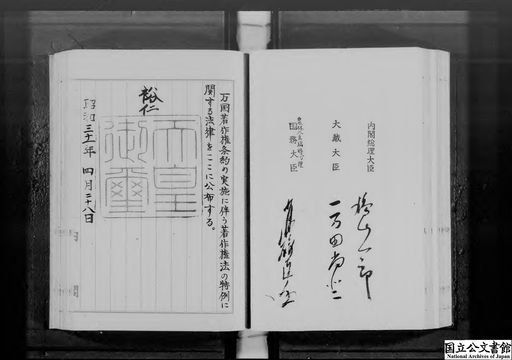 内閣総理大臣
鳩山一郎
大蔵大臣
一万田尚登
国務大臣
万国著作権条約の実施に伴う著作権法の特例に
関する法律をここに公布する。
裕仁
天皇
御璽
昭和三十一年四月二十八日
国立公文書館
National Archives of Japan